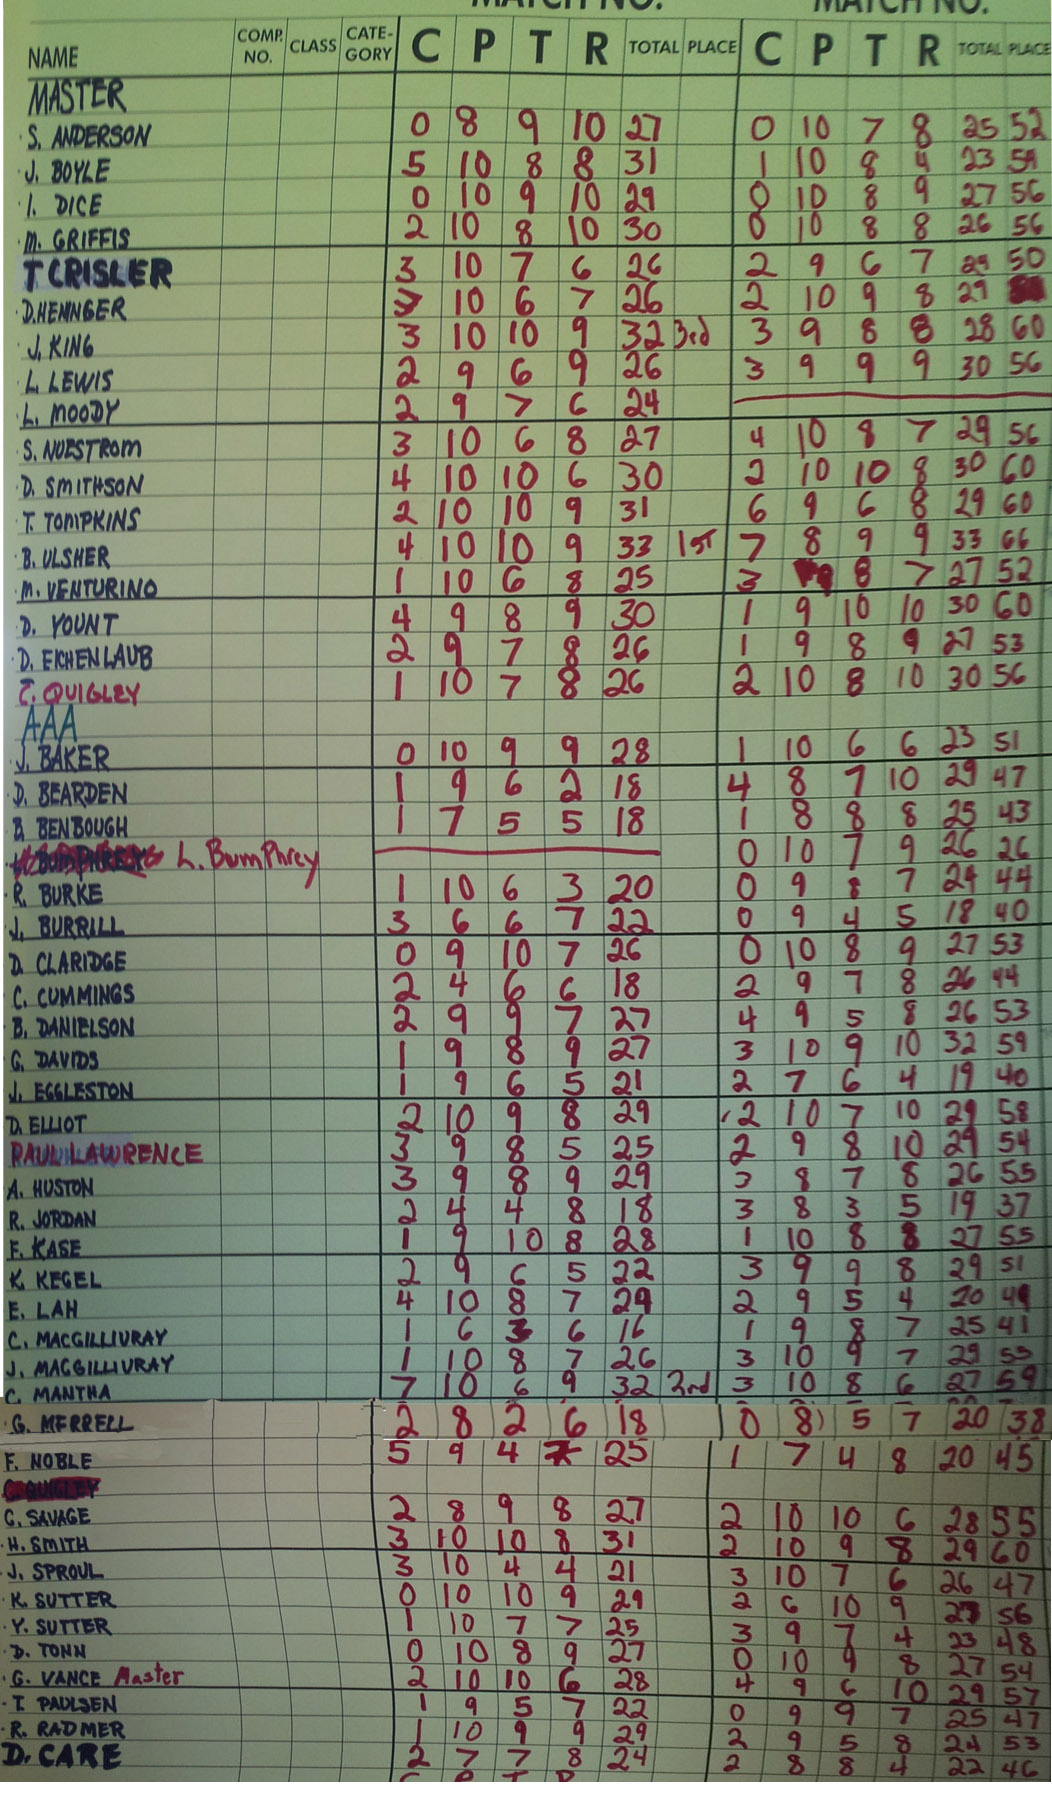 MATCH NO. MATCH NO.
NAME COMP. NO. CLASS CATE-GORY C P T R TOTAL PLACE C P T R TOTAL PLACE
MASTER
S. ANDERSON 0 8 9 10 27 0 10 7 8 25 52
J. BOYLE 5 10 8 8 31 1 10 8 4 23 54
I. DICE 0 10 9 10 29 0 10 8 9 27 56
M. GRIFFIS 2 10 8 10 30 0 10 8 8 26 56
T CRISLER 3 10 7 6 26 2 9 6 7 24 50
D. HENNGER 3 10 6 7 26 2 10 9 8 29
J. KING 3 10 10 9 32 3rd 3 9 8 8 28 60
L. LEWIS 2 9 6 9 26 3 9 9 9 30 56
L. MOODY 2 9 7 6 24
S. NUESTROM 3 10 6 8 27 4 10 8 7 29 56
D. SMITHSON 4 10 10 6 30 2 10 10 8 30 60
T. TOMPKINS 2 10 10 9 31 6 9 6 8 29 60
B. ULSHER 4 10 10 9 33 1st 7 8 9 9 33 66
M. VENTURINO 1 10 6 8 25 3 9 8 7 27 52
D. YOUNT 4 9 8 9 30 1 9 10 10 30 60
D. EICHENLAUB 2 9 7 8 26 1 9 8 9 27 53
C. QUIGLEY 1 10 7 8 26 2 10 8 10 30 56
AAA
J. BAKER 0 10 9 9 28 1 10 6 6 23 51
D. BEARDEN 1 9 6 2 18 4 8 7 10 29 47
B. BENBOUGH 1 7 5 5 18 1 8 8 8 25 43
L. BumPhrey 0 10 7 9 26 26
R. BURKE 1 10 6 3 20 0 9 8 7 24 44
J. BURRILL 3 6 6 7 22 0 9 4 5 18 40
D. CLARIDGE 0 9 10 7 26 0 10 8 9 27 53
C. CUMMINGS 2 4 6 6 18 2 9 7 8 26 44
B. DANIELSON 2 9 9 7 27 4 9 5 8 26 53
G. DAVIDS 1 9 8 9 27 3 10 9 10 32 59
J. EGGLESTON 1 9 6 5 21 2 7 6 4 19 40
D. ELLIOT 2 10 9 8 29 2 10 7 10 29 58
PAUL LAWRENCE 3 9 8 5 25 2 9 8 10 29 54
A. HUSTON 3 9 8 9 29 3 8 7 8 26 55
R. JORDAN 2 4 4 8 18 3 8 3 5 19 37
F. KASE 1 9 10 8 28 1 10 8 8 27 55
K. KEGEL 2 9 6 5 22 3 9 9 8 29 51
E. LAH 4 10 8 7 29 2 9 5 4 20 49
C. MACGILLIVRAY 1 6 3 6 16 1 9 8 7 25 41
J. MACGILLIVRAY 1 10 8 7 26 3 10 9 7 29 55
C. MANTHA 7 10 6 9 32 2nd 3 10 8 6 27 59
G. MERRELL 2 8 2 6 18 0 8 5 7 20 38
F. NOBLE 5 9 4 7 25 1 7 4 8 20 45
C. QUIGLEY
C. SAVAGE 2 8 9 8 27 2 10 10 6 28 55
H. SMITH 3 10 10 8 31 2 10 9 8 29 60
J. SPROUL 3 10 4 4 21 3 10 7 6 26 47
K. SUTTER 0 10 10 9 29 2 6 10 9 27 56
Y. SUTTER 1 10 7 7 25 3 9 7 4 23 48
D. TONN 0 10 8 9 27 0 10 9 8 27 54
G. VANCE Master 2 10 10 6 28 4 9 6 10 29 57
T. PAULSEN 1 9 5 7 22 0 9 9 7 25 47
R. RADMER 1 10 9 9 29 2 9 5 8 24 53
D. CARE 2 7 7 8 24 2 8 8 4 22 46
C P T R